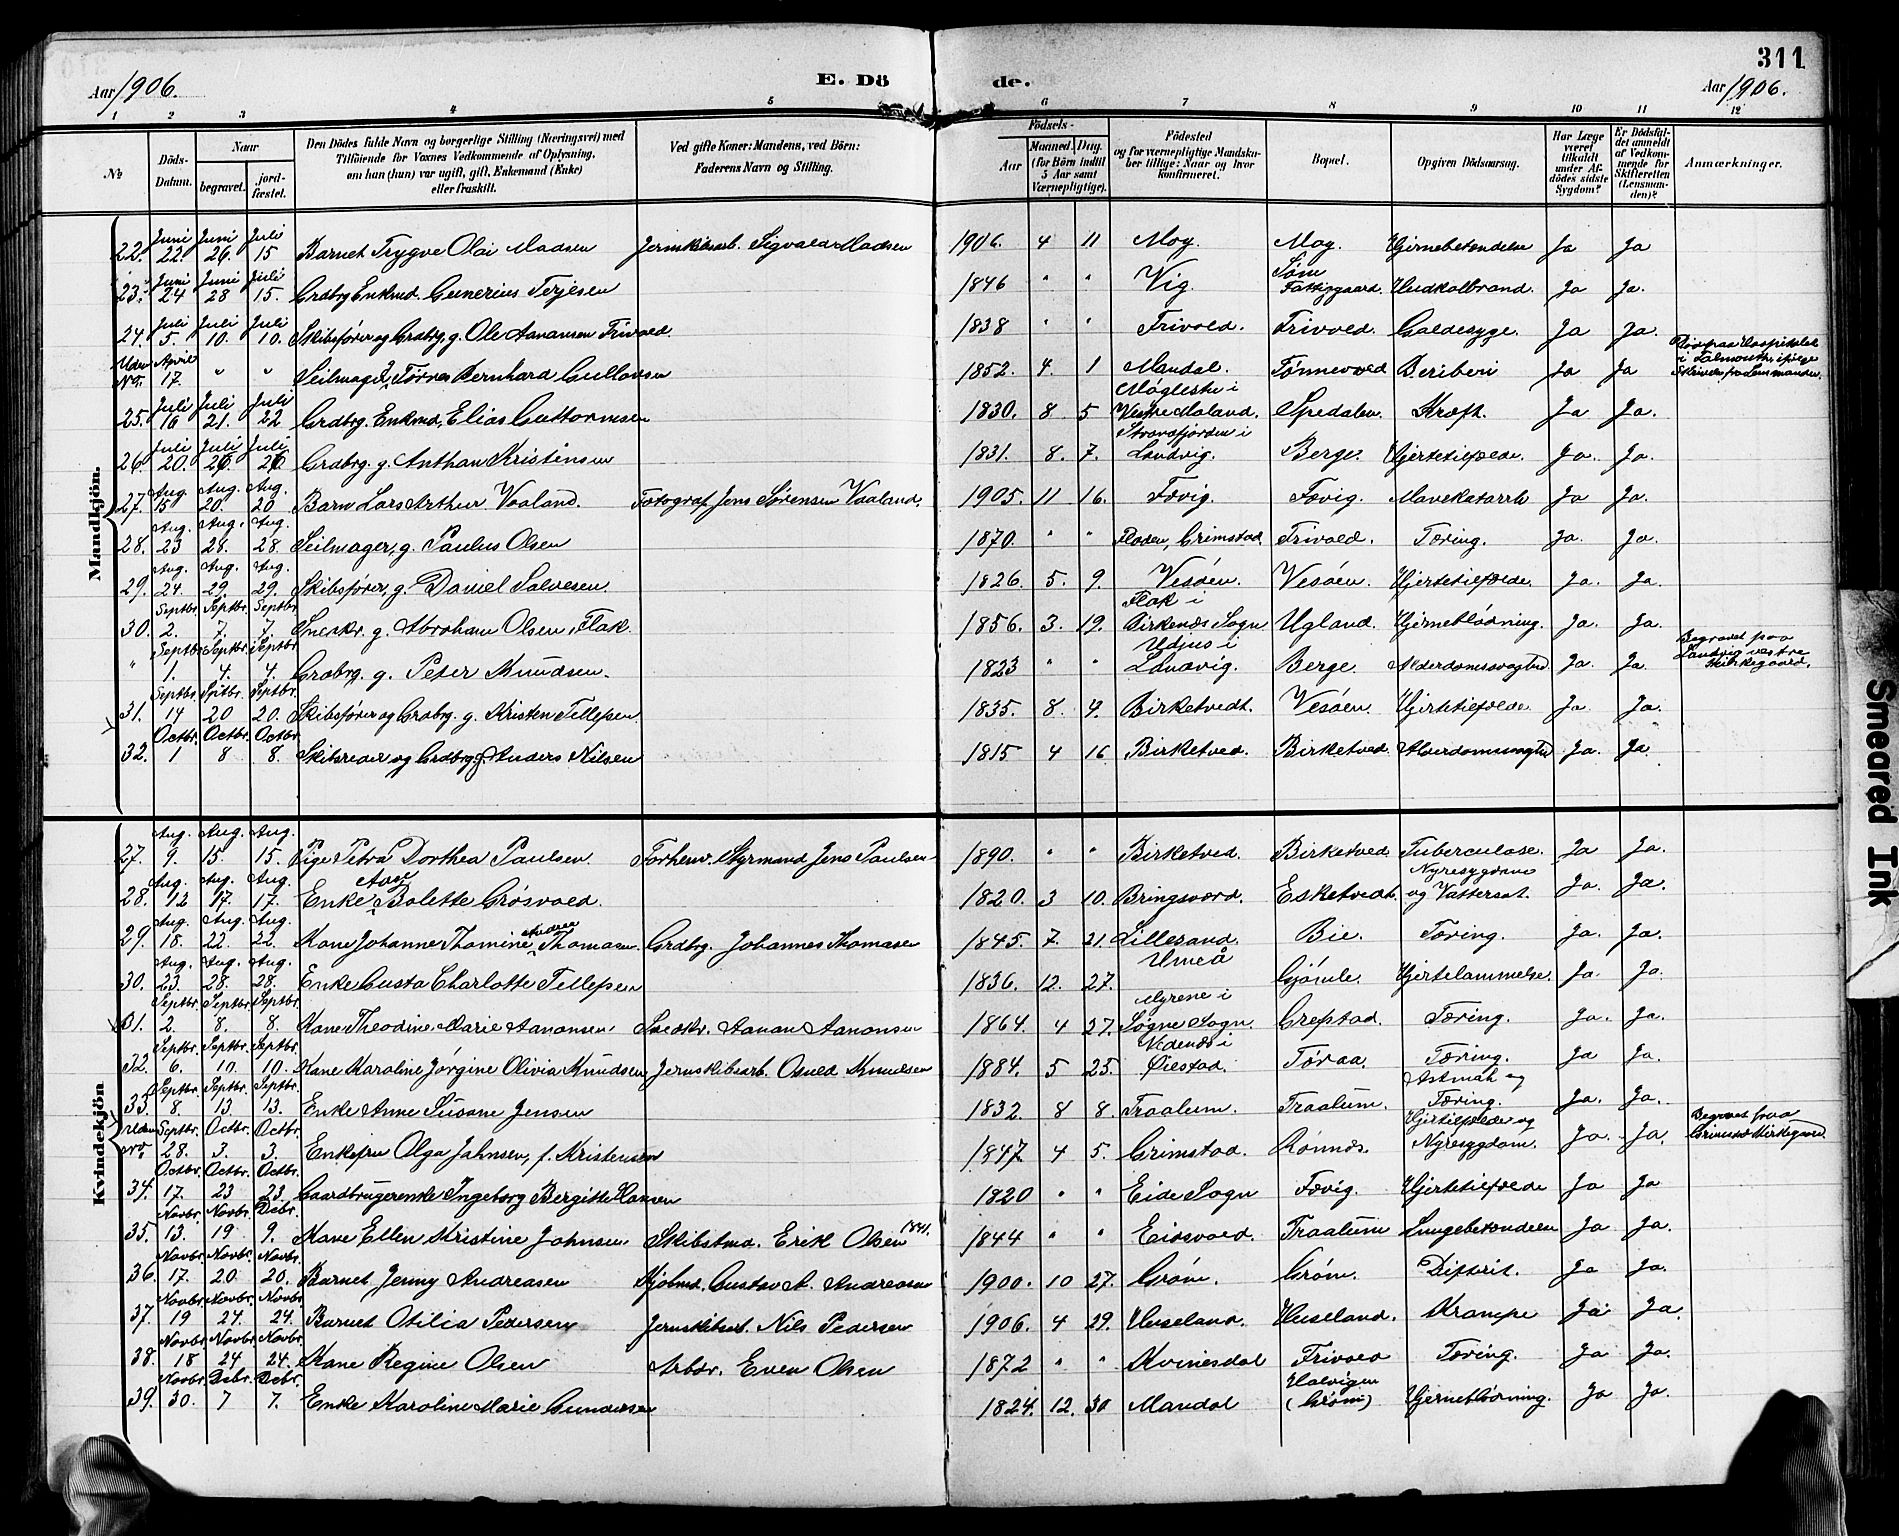 311
Aar 1906.
E. Dö
de.
Aar 1906.
1 2 3 4 5 6 7 8 9 10 11 12
No
Döds-Datum.
Naar
begravet.
jord-fæstet.
Den Dödes fulde Navn og borgerlige Stilling (Næringsvei) med
Tilföiende for Voxnes Vedkommende af Oplysning,
om han (hun) var ugift, gift, Enkemand (Enke)
eller fraskilt.
Ved gifte Koner: Mandens, ved Börn:
Faderens Navn og Stilling.
Födsels-
Aar
Maaned. Dag.
(for Börn indtil
5 Aar samt
Værnepligtige).
Födested
og for værnepligtige Mandska-
ber tillige: Naar og hvor
konfirmeret.
Bopæl.
Opgiven Dödsaarsag.
Har Læge
været
tilkaldt
under Af-
dödes sidste
Sygdom?
Er Dödsfal-
det anmeldt
af Vedkom-
mende for
Skifteretten
(Lensman-
den)?
Anmærkninger.
Mandkjön.
22. Juni 22. Juni 26. Juli 15 Barnet Trygve Olai Madsen Jernskibsarb. Sigvald Madsen 1906. 4 11 Moy. Moy. Hjernebetændelse Ja Ja
23. Juni 24 Juni 28 Juli 15. Grdbrg Enkmd. Gunerius Terjesen 1846 " " Vig. Søm Fattiggaard. Hudkolbrand. Ja Ja.
24. Juli 5. Juli 10. Juli 10. Skibsfører og Grdbrg. g. Ole Aanansen Frivold. 1838 " " Frivold. Frivold. Galdesyge. Ja Ja.
Uden No. April 17. " " Seilmager, Tørres Bernhard Gullovsen 1852. 4. 1 Mandal. Tønnevold Beriberi Ja Ja Død paa Hospitalet i Falmouth, ifølge Skrivelse fra Lensmanden.
25. Juli 16 Juli 21. Juli 22 Grdbrg. Enkmd. Elias Guttormsen 1830. 8 5 Møglestu i Vestre Moland. Spedalen. Kræft. Ja Ja.
26. Juli 20. Juli 26 Juli 26 Grdbrg. g. Anthon Kristensen 1831. 8. 7. Strandfjorden i Landvig. Berge. Hjertetilfælde. Ja. Ja.
27. Aug. 15 Aug. 20. Aug. 20 Barn Lars Arthur Vaaland. Fotograf Jens Sørensen Vaaland. 1905. 11 16. Fævig. Fævig. Mavekatarrh Ja Ja.
28. Aug. 23 Aug. 28. Aug. 28. Seilmager, g. Paulus Olsen 1870. " " Floden, Grimstad Frivold. Tæring. Ja. Ja.
29. Aug. 24. Aug. 29. Aug. 29. Skibsfører, g. Daniel Salvesen. 1826. 5. 9. Vesøen. Vesøen. Hjertetilfælde. Ja. Ja.
30. Septbr. 2. Septbr. 7. Septbr. 7. Snedkr. g. Abraham Olsen Flak. 1856. 3. 19. Flak i Birkenæs Sogn Ugland. Hjerneblødning. Ja. Ja.
" Septbr. 1. Septbr. 4. Septbr. 4. Grdbrg. g. Peter Knudsen. 1823 " " Udjus i Landvig. Berge. Alderdomssvaghed Ja. Ja. Begravet paa Landvig vestre Kirkegaard.
31. Septbr. 14 Septbr. 20 Septbr. 20. Skibsfører og Grdbrg. g. Kristen Tellefsen 1835. 8. 4. Birketvedt. Vesøen. Hjertetilfælde Ja. Ja.
32. Octbr. 1 Octbr. 8 Octbr. 8. Skibsreder og Grdbrg. g. Anders Nilsen 1815 4 16 Birketved. Birketved. Alderdomssvaghed Ja. Ja.
Kvindekjön
27. Aug. 9. Aug. 15. Aug. 15. Pige Petra Dorthea Paulsen. Forhenv. Styrmand Jens Paulsen 1890. " " Birketved. Birketved Tuberculose. Ja Ja.
28. Aug. 12 Aug. 17. Aug. 17. Enke Aase Bolette Grøsvold. 1820. 3 10. Bringsværd. Esketvedt. Nyresygdom og Vattersot. Ja. Ja.
29. Aug. 18. Aug. 22. Aug. 22. Kone Johanne Thomine Andrea Thomasen. Grdbrg. Johannes Thomasen 1845. 7. 21. Lillesand. Bie. Tæring. Ja. Ja.
30. Aug. 23. Aug. 28. Aug. 28. Enke Gusta Charlotte Tellefsen 1836. 12. 27. Umeå Gjømle. Hjertelammelse. Ja. Ja.
31. Septbr. 2. Septbr. 8. Septbr. 8. Kone Theodine Marie Aanonsen. Snedkr. Aanan Aanonsen 1864. 4 27. Myrene i Søgne Sogn. Grefstad. Tæring. Ja. Ja.
32. Septbr. 6. Septbr. 10. Septbr. 10. Kone Karoline Jørgine Olivia Knudsen Jernskibsarb. Osuld Knudsen 1884. 5 25. Nedenæs i Øiestad. Toraa. Tæring. Ja Ja.
33. Septbr. 8. Septbr. 13. Septbr. 13. Enke Anne Susane Jensen 1832. 8 8. Traalum. Traalum. Astmah og Tæring. Ja. Ja.
Uden No Septbr. 28. Octbr. 3. Octbr. 3. Enkefru Olga Jahnsen, f. Kristensen 1847. 4 5. Grimstad. Rønnes. Hjertetilfælde og Nyresygdom. Ja. Ja. Begravet paa Grimstad Kirkegaard.
34. Octbr. 17. Octbr. 23 Octbr. 23. Gaardbrugerenke Ingeborg Bergitte Hansen 1820 " " Eide Sogn Fævig. Hjertetilfælde Ja Ja
35. Novbr. 13. Novbr. 19 Debr. 9. Kone Ellen Kristine Johnsen. Skibstmd. Erik Olsen 1841. 1844 " " Eidsvold. Traalum Lungebetændelse Ja Ja.
36. Novbr. 17. Novbr. 20. Novbr. 20. Barnet Jenny Andreasen Kjølmd. Gustav A. Andreasen 1900. 10 27. Grøm. Grøm. Difterit. Ja Ja.
37. Novbr. 19 Novbr. 24. Novbr. 24. Barnet Otilia Pedersen Jernskibsarb. Nils Pedersen 1906. 4 29. Huseland. Huseland. Krampe Ja. Ja.
38. Novbr. 18 Novbr. 24 Novbr. 24. Kone Regine Olsen Arbdr. Even Olsen 1872 " " Kvinesdal Frivold Tæring. Ja Ja.
39. Novbr. 30. Debr. 7 Debr. 7. Enke Karoline Marie Gundersen 1824. 12. 30 Mandal Halvigen (Grøm) Hjerneblødning. Ja Ja.
Smeared Ink